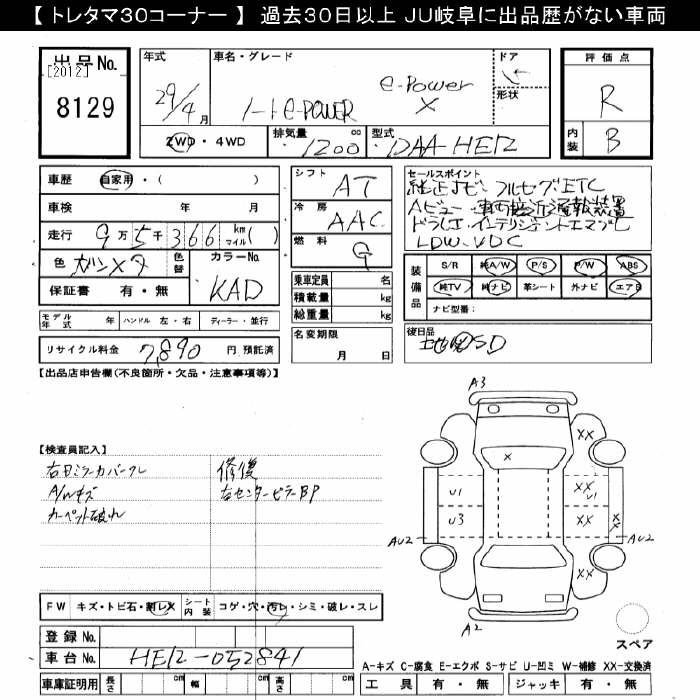 【 トレタマ30コーナー 】 過去30日以上 JU岐阜に出品歴がない車両
出品No.
[2012]
8129
年式
29/4月
車名・グレード
ノート e-POWER
e-Power X
ドア
形状
評価点
R
内装
B
2WD・4WD
排気量
1200 cc
型式
DAA-HE12
車歴 自家用・( )
車検 年 月
走行 9万5千366 km マイル( )
色 ガンメタ
色替
カラーNo.
KAD
保証書 有・無
シフト
AT
冷房
AAC
燃料
G
乗車定員 名
積載量 kg
総重量 kg
セールスポイント
純正ナビ フルセグ ETC
Aビュー 車両接近通報装置
LDW. VDC
装備品
S/R 純A/W P/S P/W ABS
純TV 純ナビ 革シート 外ナビ エアB
ナビ型番:
モデル年式 年 ハンドル 左・右 ディーラー・並行
リサイクル料金 7,890 円 預託済
名変期限
月 日
後日品
地図SD
【出品店申告欄(不良箇所・欠品・注意事項等)】
【検査員記入】
右ドミラーカバークレ
A/Wキズ
カーペット破れ
修復
右センターピラーBP
A3
X
XX
U1
XX
U1
U3
XX
XX
AU2
AU2
XX
A2
スペア
FW キズ・トビ石・割レ X
シート内装 コゲ・穴・汚レ・シミ・破レ・スレ
登録No.
車台No. HE12-052841
車庫証明用 長さ cm 幅 cm 高さ cm
A-キズ C-腐食 E-エクボ S-サビ U-凹ミ W-補修 XX-交換済
工具 有・無 ジャッキ 有・無